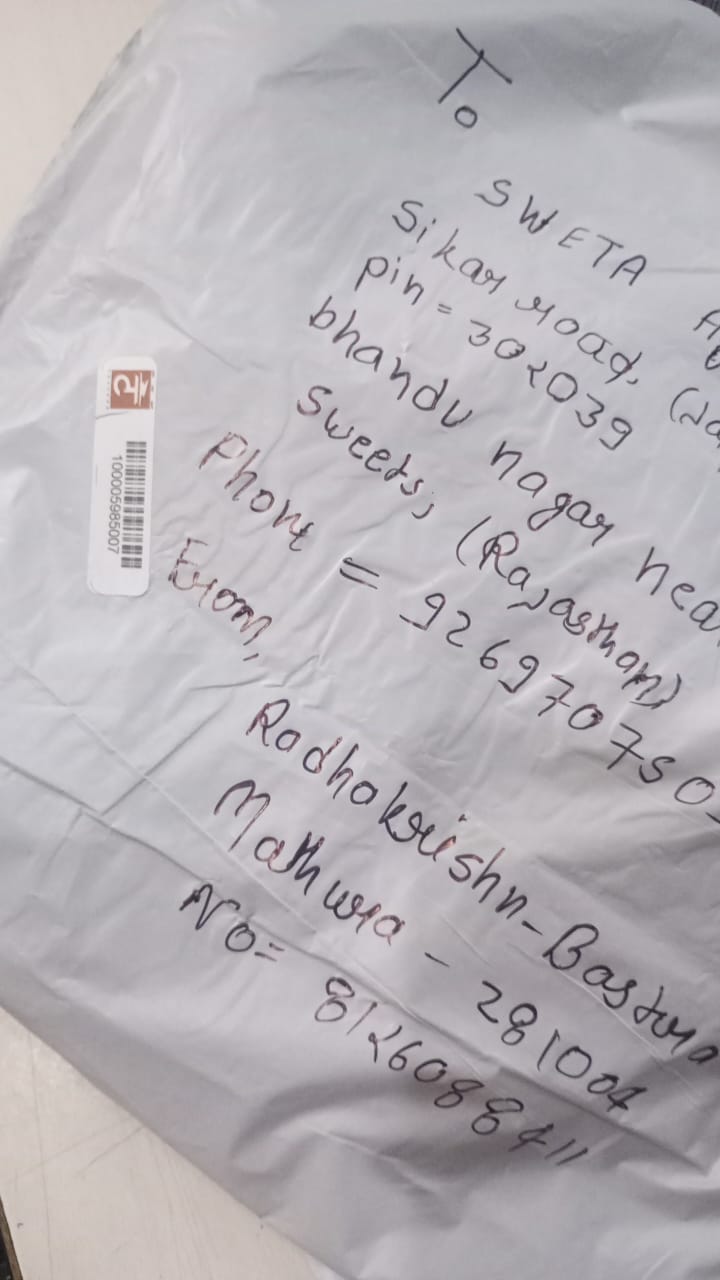 To
SWETA
Sikar road,
pin = 302039
bhandu nagar near
Sweets, (Rajasthan)
Phone = 926970750
From,
Radhakrishn-Bastra
Mathura - 281004
No= 8126088411
100005985007